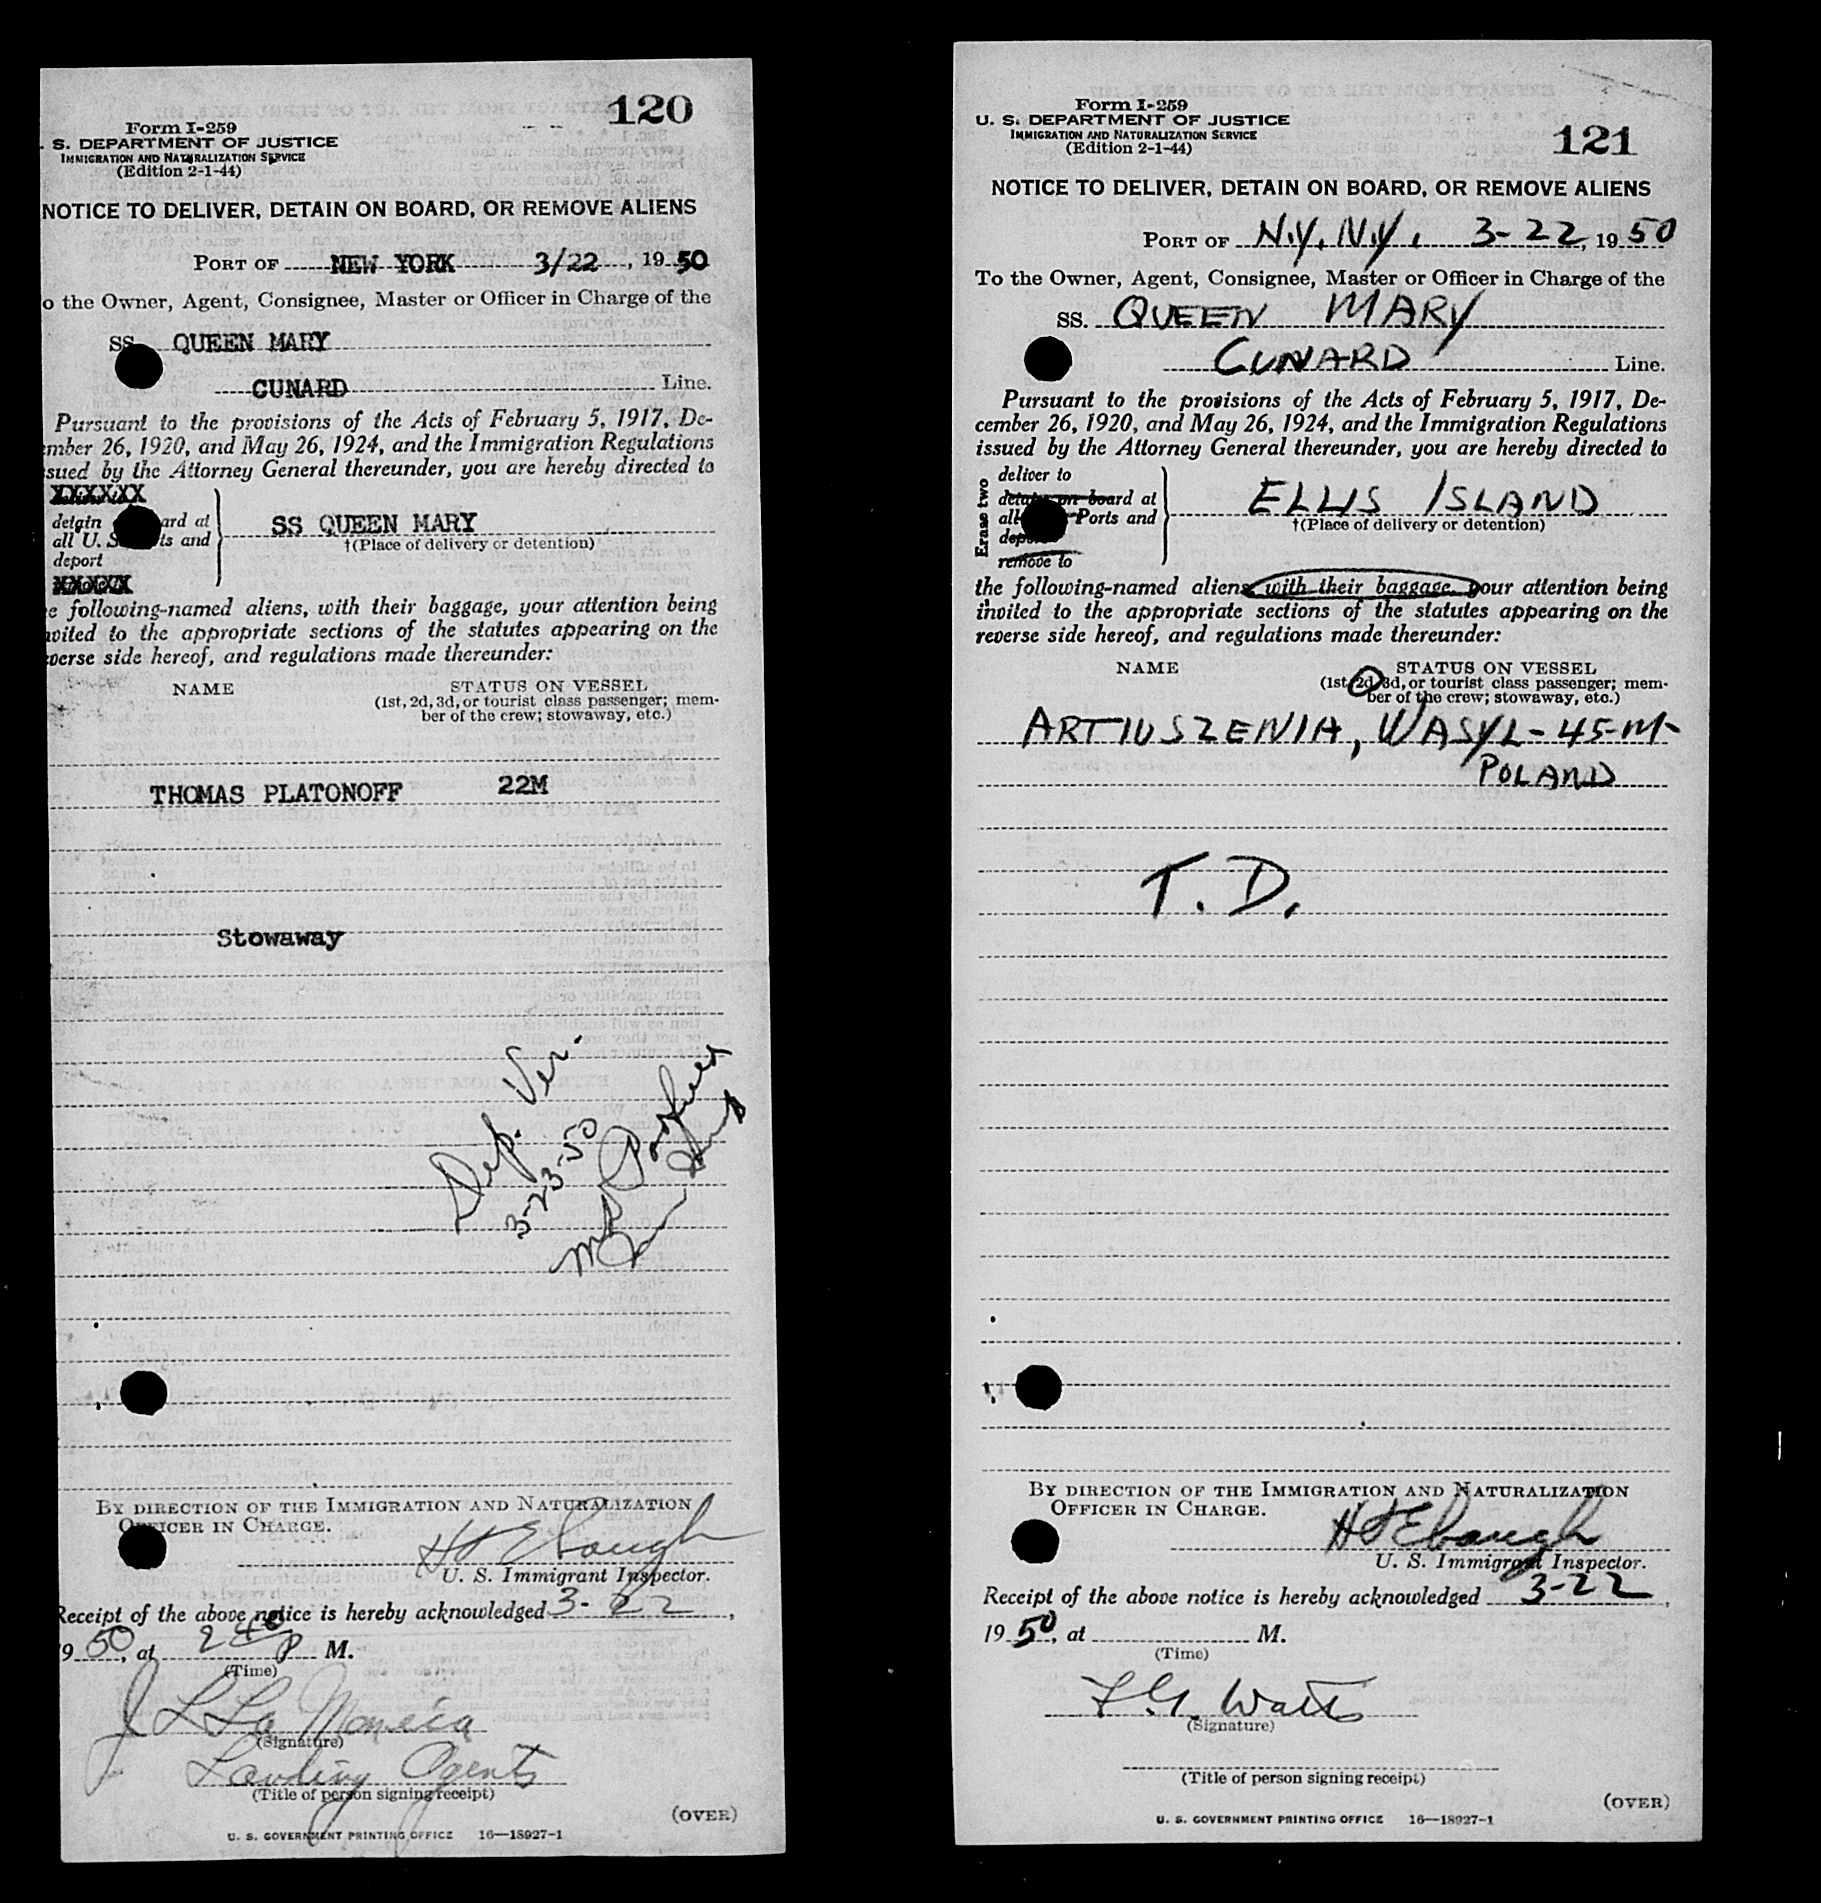 120
Form I-259
. S. DEPARTMENT OF JUSTICE
IMMIGRATION AND NATURALIZATION SERVICE
(Edition 2-1-44)
NOTICE TO DELIVER, DETAIN ON BOARD, OR REMOVE ALIENS
PORT OF NEW YORK 3/22, 1950
o the Owner, Agent, Consignee, Master or Officer in Charge of the
SS. QUEEN MARY
CUNARD Line.
Pursuant to the provisions of the Acts of February 5, 1917, De-
mber 26, 1920, and May 26, 1924, and the Immigration Regulations
sued by the Attorney General thereunder, you are hereby directed to
XXXXXX
detain ard at
all U. S ts and SS QUEEN MARY
†(Place of delivery or detention)
deport
XXXXX
e following-named aliens, with their baggage, your attention being
vited to the appropriate sections of the statutes appearing on the
verse side hereof, and regulations made thereunder:
NAME STATUS ON VESSEL
(1st, 2d, 3d, or tourist class passenger; mem-
ber of the crew; stowaway, etc.)
THOMAS PLATONOFF 22M
Stowaway
Dep. Ver.
3-23-50
BY DIRECTION OF THE IMMIGRATION AND NATURALIZATION
OFFICER IN CHARGE.
H J Ebaugh
U. S. Immigrant Inspector.
Receipt of the above notice is hereby acknowledged 3-22,
1950, at 2 40 P M.
(Time)
J L La Monica
(Signature)
Landing Agents
(Title of person signing receipt)
(OVER)
U. S. GOVERNMENT PRINTING OFFICE 16—18927-1
Form I-259
U. S. DEPARTMENT OF JUSTICE
IMMIGRATION AND NATURALIZATION SERVICE
(Edition 2-1-44)
121
NOTICE TO DELIVER, DETAIN ON BOARD, OR REMOVE ALIENS
PORT OF N.Y. N.Y. 3-22, 1950
To the Owner, Agent, Consignee, Master or Officer in Charge of the
SS. QUEEN MARY
CUNARD Line.
Pursuant to the provisions of the Acts of February 5, 1917, De-
cember 26, 1920, and May 26, 1924, and the Immigration Regulations
issued by the Attorney General thereunder, you are hereby directed to
Erase two
deliver to
detain on board at ELLIS ISLAND
all Ports and †(Place of delivery or detention)
depo
remove to
the following-named aliens, with their baggage, your attention being
invited to the appropriate sections of the statutes appearing on the
reverse side hereof, and regulations made thereunder:
NAME STATUS ON VESSEL
(1st, 2d, 3d, or tourist class passenger; mem-
ber of the crew; stowaway, etc.)
ARTIUSZENIA, WASYL - 45-M-
POLAND
T. D.
BY DIRECTION OF THE IMMIGRATION AND NATURALIZATION
OFFICER IN CHARGE.
H J Ebaugh
U. S. Immigrant Inspector.
Receipt of the above notice is hereby acknowledged 3-22,
1950, at M.
(Time)
F. G. Watts
(Signature)
(Title of person signing receipt)
(OVER)
U. S. GOVERNMENT PRINTING OFFICE 16—18927-1